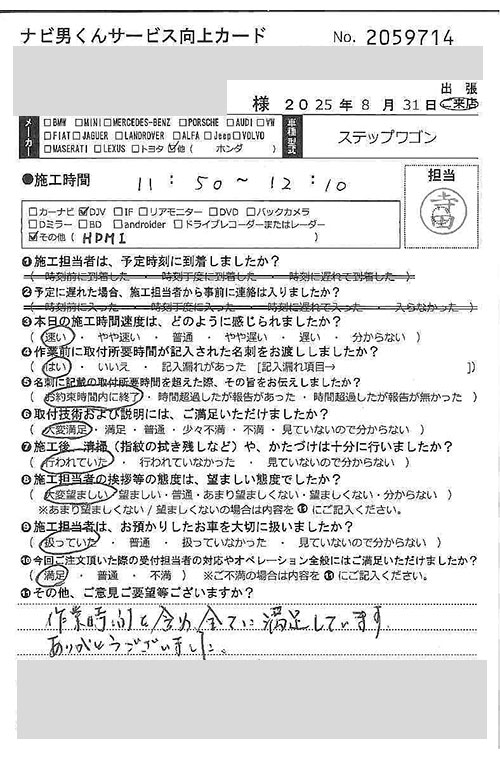 ナビ男くんサービス向上カード No. 2059714
様 2025年8月31日 出張・ご来店
メーカー □BMW □MINI □MERCEDES-BENZ □PORSCHE □AUDI □VW
□FIAT □JAGUER □LANDROVER □ALFA □Jeep □VOLVO
□MASERATI □LEXUS □トヨタ ☑他( ホンダ )
車種型式 ステップワゴン
●施工時間 11:50~12:10
担当 寺田
□カーナビ ☑DJV □IF □リアモニター □DVD □バックカメラ
□Dミラー □BD □androider □ドライブレコーダーまたはレーダー
☑その他( HDMI )
❶施工担当者は、予定時刻に到着しましたか?
( 時刻前に到着した ・ 時刻丁度に到着した ・ 時刻に遅れて到着した )
❷予定に遅れた場合、施工担当者から事前に連絡は入りましたか?
( 時刻前に入った ・ 時刻丁度に入った ・ 時刻に遅れて入った ・ 入らなかった )
❸本日の施工時間速度は、どのように感じられましたか?
( 速い ・ やや速い ・ 普通 ・ やや遅い ・ 遅い ・ 分からない )
❹作業前に取付所要時間が記入された名刺をお渡ししましたか?
( はい ・ いいえ ・ 記入漏れがあった [記入漏れ項目→ ])
❺名刺に記載の取付所要時間を超えた際、その旨をお伝えしましたか?
( お約束時間内に終了 ・ 時間超過したが報告があった ・ 時間超過したが報告が無かった )
❻取付技術および説明には、ご満足いただけましたか?
( 大変満足 ・ 満足 ・ 普通 ・ 少々不満 ・ 不満 ・ 見ていないので分からない )
❼施工後、清掃(指紋の拭き残しなど)や、かたづけは十分に行いましたか?
( 行われていた ・ 行われていなかった ・ 見ていないので分からない )
❽施工担当者の挨拶等の態度は、望ましい態度でしたか?
( 大変望ましい ・ 望ましい ・ 普通 ・ あまり望ましくない ・ 望ましくない ・ 分からない )
※あまり望ましくない / 望ましくないの場合は内容を⓫にご記入ください。
❾施工担当者は、お預かりしたお車を大切に扱いましたか?
( 扱っていた ・ 普通 ・ 扱っていなかった ・ 見ていないので分からない )
❿今回ご注文頂いた際の受付担当者の対応やオペレーション全般にはご満足いただけましたか?
( 満足 ・ 普通 ・ 不満 ) ※ご不満の場合は内容を⓫にご記入ください。
⓫その他、ご意見ご要望等ございますか?
作業時間も含め、全てに満足しています。
ありがとうございました。